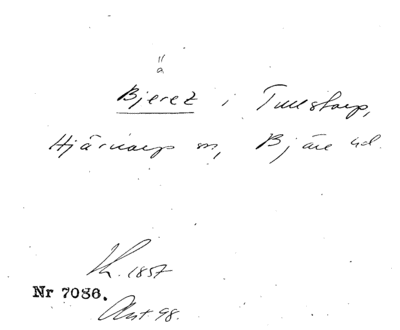 ä
Bjerez i Tullstorp,
Hjärnarp sn, Bjäre hd.
1857
Nr 7086.
Ant 98.